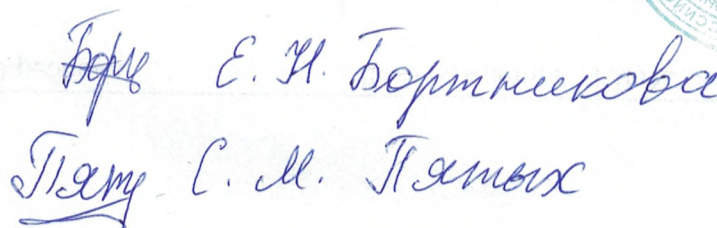 Борц Е. Н. Бортникова
Пяты С. М. Пятых